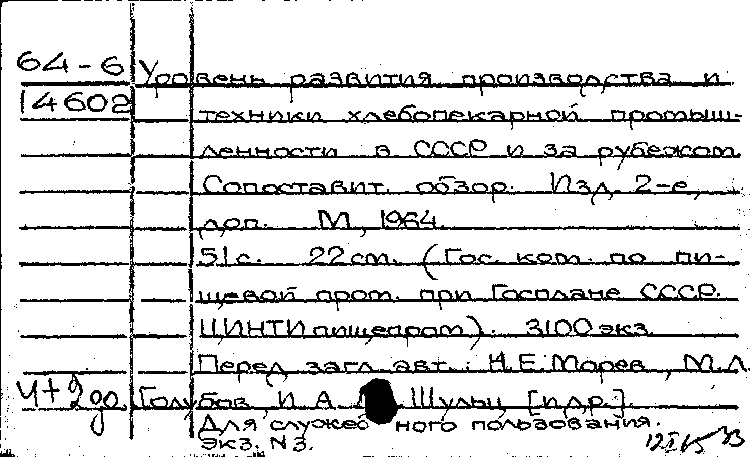 64-6 Уровень развития производства и
14602 техники хлебопекарной промыш-
ленности в СССР и за рубежом.
Сопоставит. обзор. Изд. 2-е,
доп. М., 1964.
51 с. 22 см. (Гос. ком. по пи-
щевой пром. при Госплане СССР.
ЦИНТИпищепром). 3100 экз.
Перед загл. авт.: Н.Е. Морев, М.Л.
Ч+2до. Голубов, И.А. Шульц [и др.].
Для служебного пользования.
Экз. N 3.